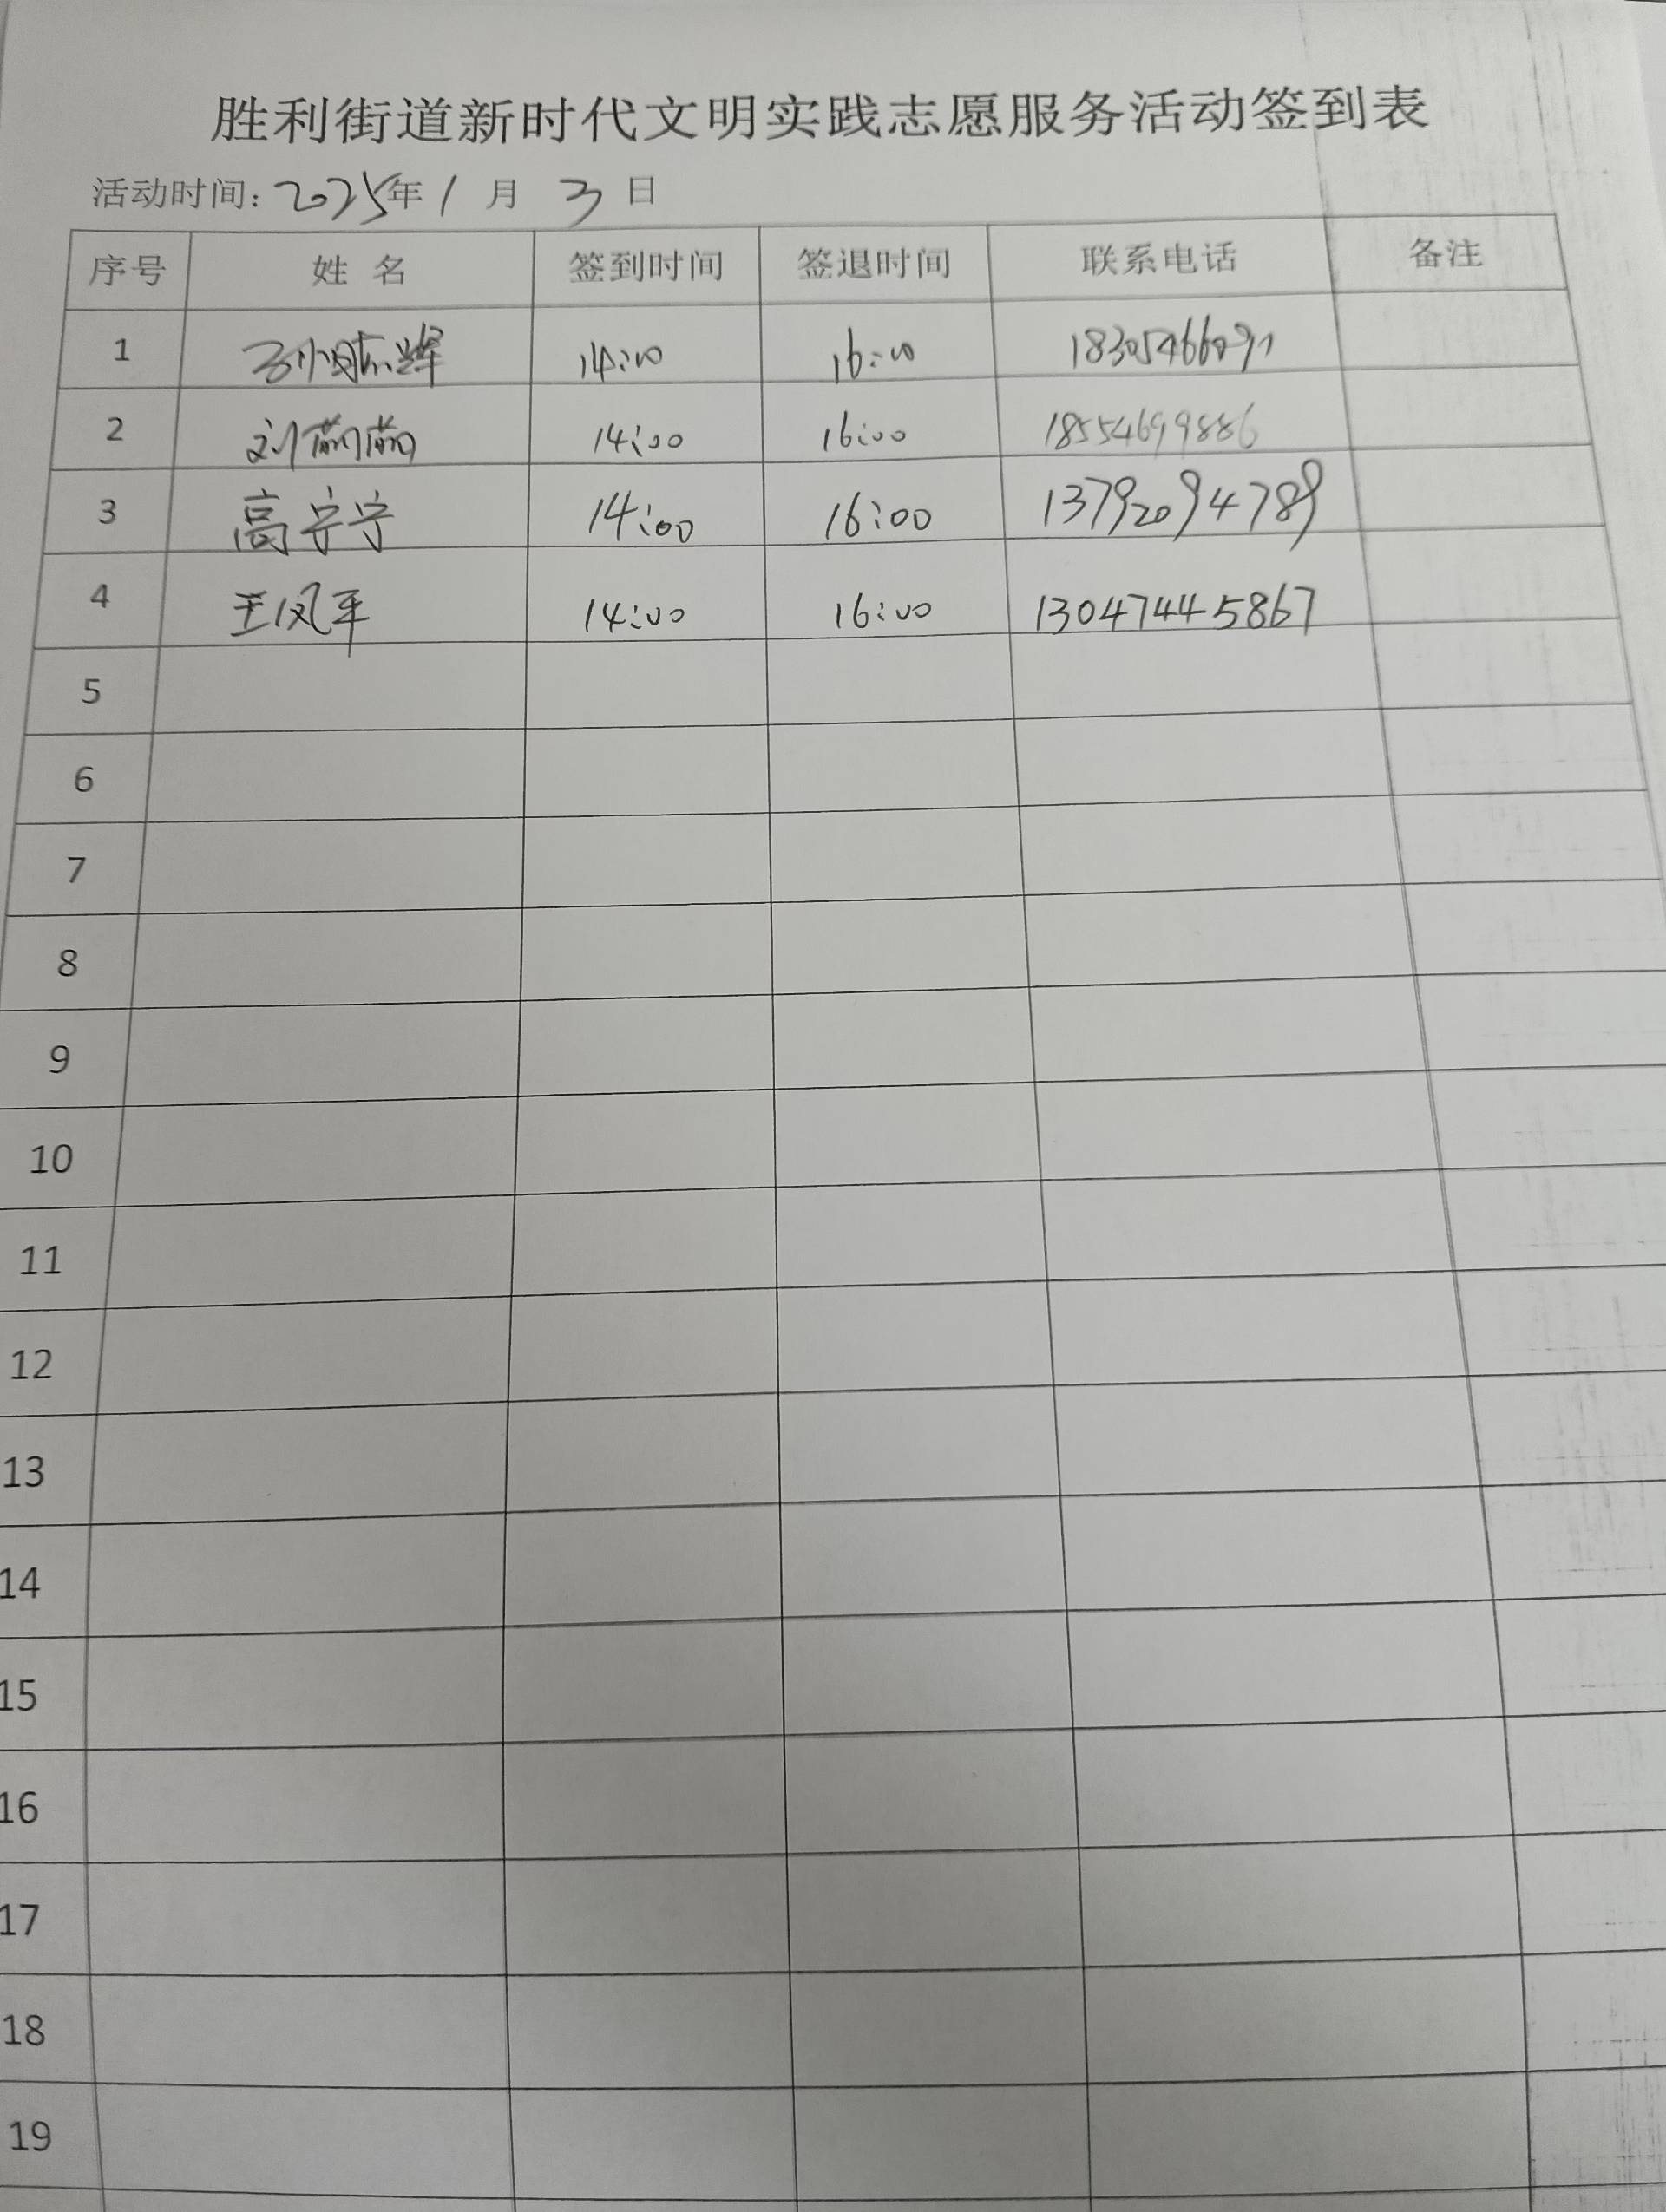 胜利街道新时代文明实践志愿服务活动签到表
活动时间: 2025年 1 月 3 日
序号 姓 名 签到时间 签退时间 联系电话 备注
1 14:00 16:00
2 刘萌萌 14:00 16:00 18554699886
3 高宁宁 14:00 16:00 13792094789
4 王凤平 14:00 16:00 13047445867
5
6
7
8
9
10
11
12
13
14
15
16
17
18
19